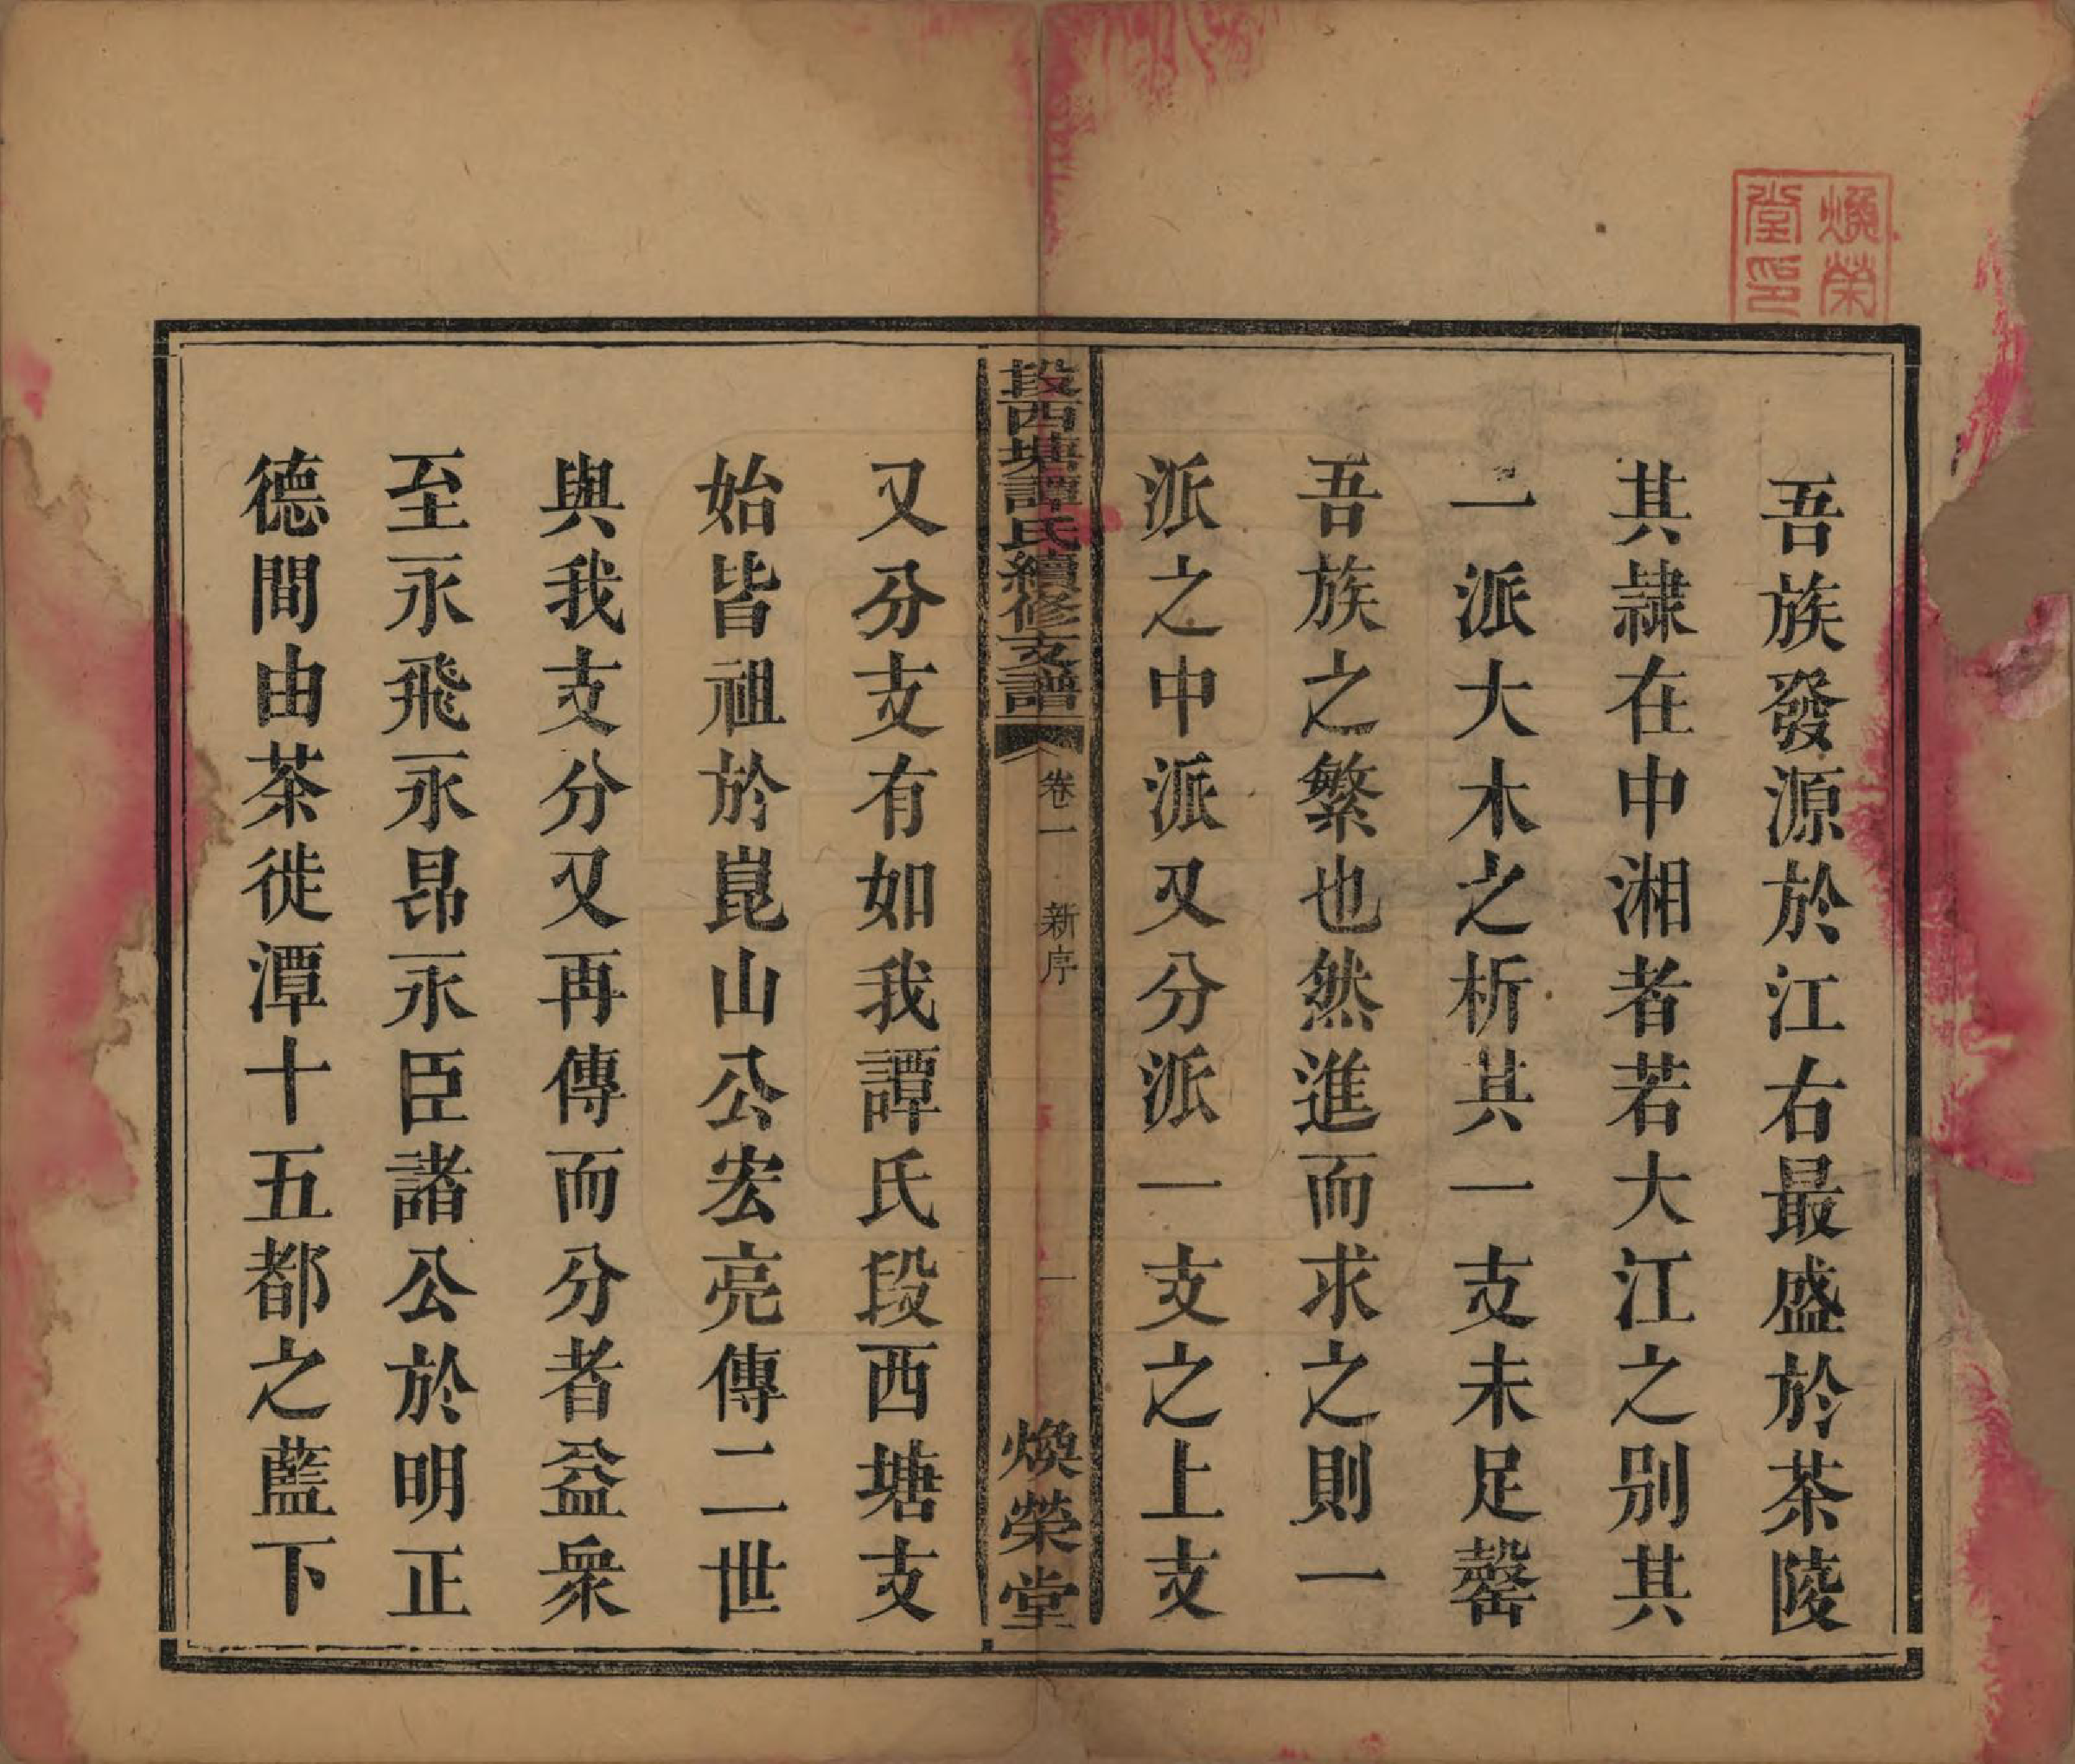 煥榮
堂印
吾族發源於江右最盛於茶陵
其隷在中湘者若大江之別其
一派大木之析其一支未足罄
吾族之繁也然進而求之則一
派之中派又分派一支之上支
段西塘譚氏續修支譜
卷一 新序
一
煥榮堂
又分支有如我譚氏段西塘支
始皆祖於崑山公宏亮傳二世
與我支分又再傳而分者益衆
至永飛永昂永臣諸公於明正
德間由茶徙潭十五都之藍下